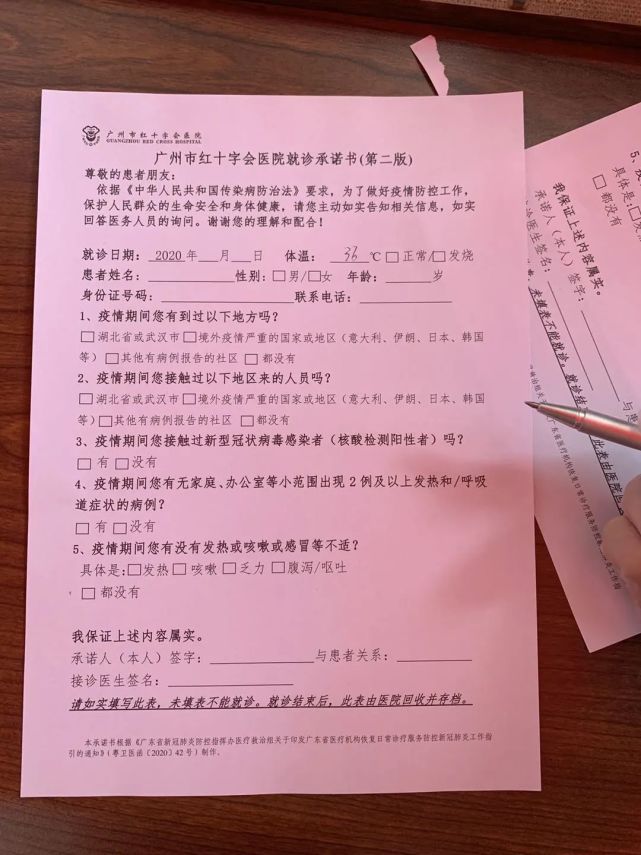 广州市红十字会医院
GUANGZHOU RED CROSS HOSPITAL
广州市红十字会医院就诊承诺书(第二版)
尊敬的患者朋友:
依据《中华人民共和国传染病防治法》要求，为了做好疫情防控工作，
保护人民群众的生命安全和身体健康，请您主动如实告知相关信息，如实
回答医务人员的询问。谢谢您的理解和配合！
就诊日期: 2020 年___月___日 体温: 36 ℃ □正常/□发烧
患者姓名:__________性别: □男/□女 年龄:______岁
身份证号码:________________联系电话:___________
1、疫情期间您有到过以下地方吗？
□湖北省或武汉市□境外疫情严重的国家或地区（意大利、伊朗、日本、韩国
等）□其他有病例报告的社区 □都没有
2、疫情期间您接触过以下地区来的人员吗？
□湖北省或武汉市□境外疫情严重的国家或地区（意大利、伊朗、日本、韩国
等）□其他有病例报告的社区 □都没有
3、疫情期间您接触过新型冠状病毒感染者（核酸检测阳性者）吗？
□ 有 □没有
4、疫情期间您有无家庭、办公室等小范围出现 2 例及以上发热和/呼吸
道症状的病例？
□ 有 □没有
5、疫情期间您有没有发热或咳嗽或感冒等不适？
具体是:□发热□ 咳嗽 □乏力 □腹泻/呕吐
□ 都没有
我保证上述内容属实。
承诺人（本人）签字: ____________与患者关系: _________
接诊医生签名: ______________
请如实填写此表，未填表不能就诊。就诊结束后，此表由医院回收并存档。
本承诺书根据《广东省新冠肺炎防控指挥办医疗救治组关于印发广东省医疗机构恢复日常诊疗服务防控新冠肺炎工作指
引的通知》（粤卫医函〔2020〕42 号）制作。
5、疫
具体是:□发
□ 都没有
我保证上述内容属实。
承诺人（本人）签字:
与患
诊医生签名:
未填表不能就诊。就诊结
此表由医院
救治组关于
广东省医疗机构恢复日常诊疗服务防控
炎工作指